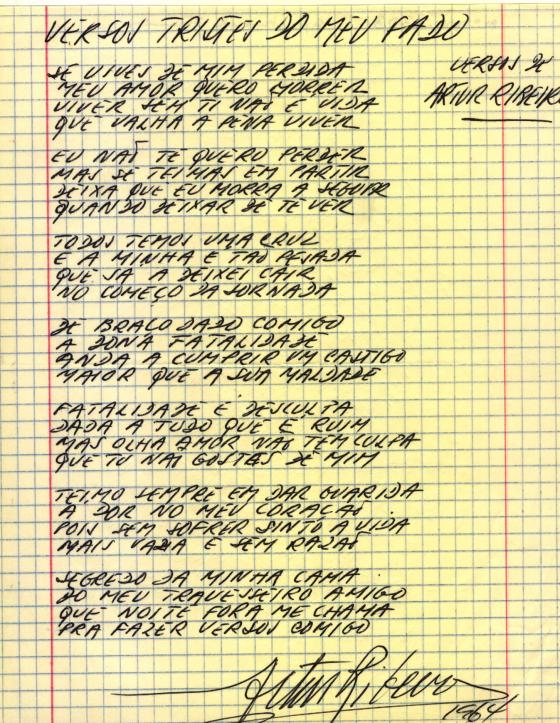 VERSOS TRISTES DO MEU FADO
VERSOS DE
ARTUR RIBEIRO
SE VIVES DE MIM PERDIDA
MEU AMOR QUERO MORRER
VIVER SEM TI NÃO É VIDA
QUE VALHA A PENA VIVER
EU NÃO TE QUERO PERDER
MAS SE TEIMAS EM PARTIR
DEIXA QUE EU MORRA A SEGUIR
QUANDO DEIXAR DE TE VER
TODOS TEMOS UMA CRUZ
E A MINHA E TÃO PESADA
QUE JA A DEIXEI CAIR
NO COMEÇO DA JORNADA
DE BRAÇO DADO COMIGO
A DONA FATALIDADE
ANDA A CUMPRIR UM CASTIGO
MAIOR QUE A SUA MALDADE
FATALIDADE É DESCULPA
DADA A TUDO QUE É RUIM
MAS OLHA AMOR NÃO TEM CULPA
QUE TU NÃO GOSTES DE MIM
TEIMO SEMPRE EM DAR GUARIDA
A DOR NO MEU CORAÇÃO
POIS SEM SOFRER SINTO A VIDA
MAIS VAZIA E SEM RAZÃO
SEGREDO DA MINHA CAMA
DO MEU TRAVESSEIRO AMIGO
QUE NOITE FORA ME CHAMA
PRA FAZER VERSOS COMIGO
Artur Ribeiro
1964